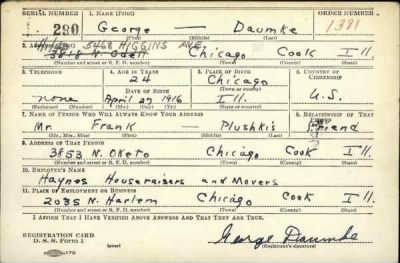 SERIAL NUMBER 1. NAME (Print) ORDER NUMBER
280 George — Daumke 1381
(First) (Middle) (Last)
5468 HIGGINS AVE.
2. ADDRESS (Print)
3818 N. Odell Chicago Cook Ill.
(Number and street or R. F. D. number) (Town) (County) (State)
3. TELEPHONE 4. AGE IN YEARS 5. PLACE OF BIRTH 6. COUNTRY OF CITIZENSHIP
24 Chicago
DATE OF BIRTH (Town or county)
none April 27 1916 Ill. U.S.
(Exchange) (Number) (Mo.) (Day) (Yr.) (State or country)
7. NAME OF PERSON WHO WILL ALWAYS KNOW YOUR ADDRESS 8. RELATIONSHIP OF THAT PERSON
Mr. Frank — Plushkis Friend
(Mr., Mrs., Miss) (First) (Middle) (Last)
9. ADDRESS OF THAT PERSON
3853 N. Oketo Chicago Cook Ill.
(Number and street or R. F. D. number) (Town) (County) (State)
10. EMPLOYER'S NAME
Haynes Houseraisers and Movers
11. PLACE OF EMPLOYMENT OR BUSINESS
2035 N. Harlem Chicago Cook Ill.
(Number and street or R. F. D. number) (Town) (County) (State)
I AFFIRM THAT I HAVE VERIFIED ABOVE ANSWERS AND THAT THEY ARE TRUE.
REGISTRATION CARD
D. S. S. Form 1 George Daumke
(Registrant's signature)